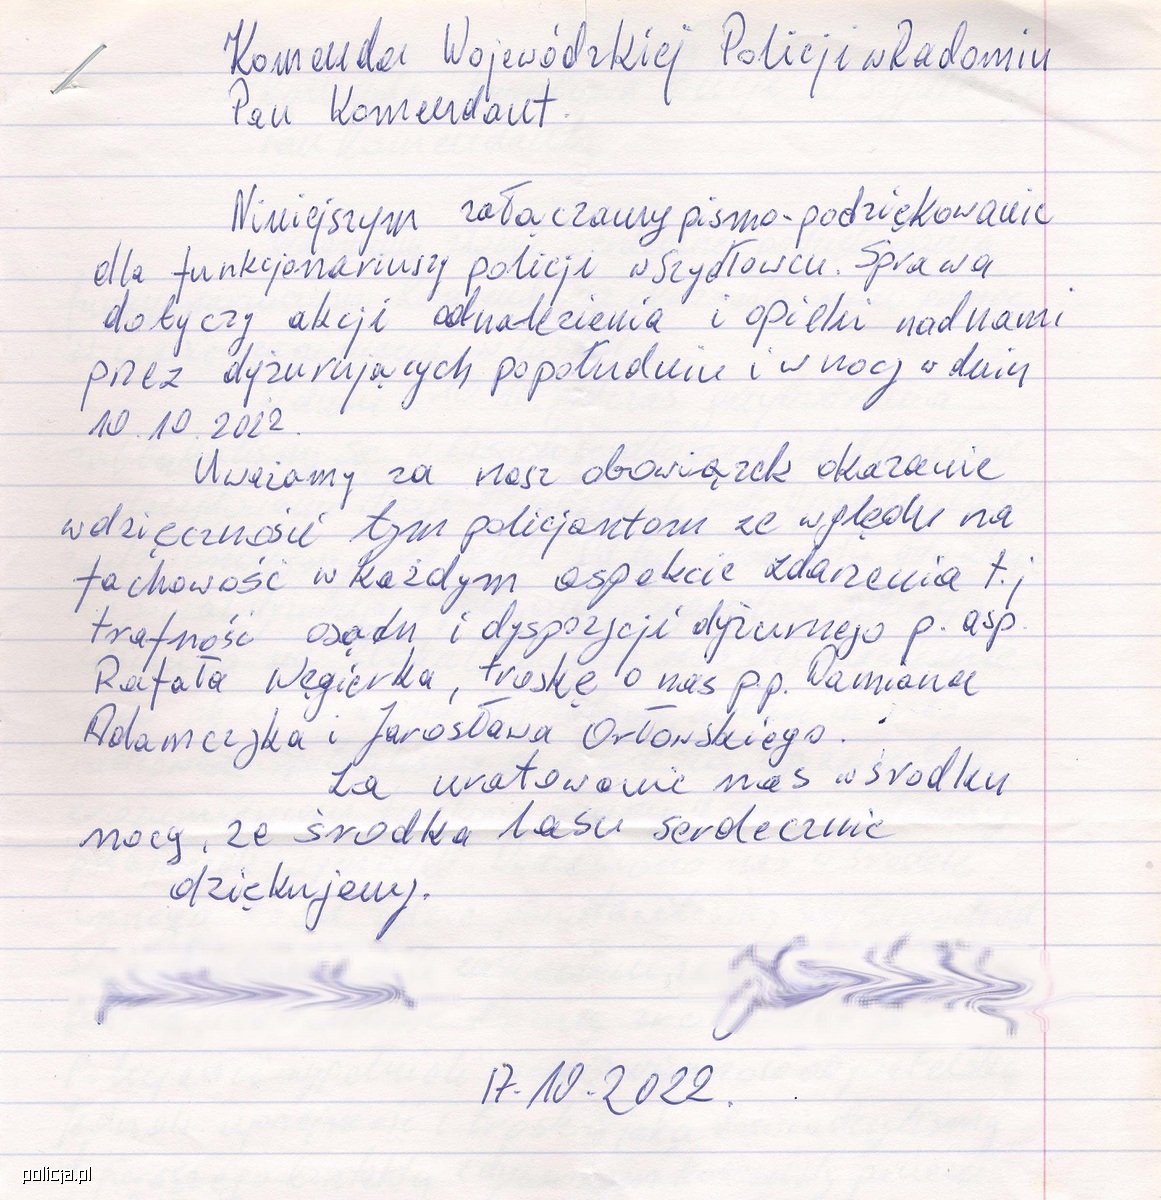 Komenda Wojewódzkiej Policji w Radomiu
Pan Komendant.
Niniejszym załączamy pismo-podziękowanie
dla funkcjonariuszy policji w Szydłowcu. Sprawa
dotyczy akcji odnalezienia i opieki nad nami
przez dyżurujących popołudniu i w nocy w dniu
10.10.2022.
Uważamy za nasz obowiązek okazanie
wdzięczność tym policjantom ze względu na
fachowość w każdym aspekcie zdarzenia t.j
trafność osądu i dyspozycji dyżurnego p. asp.
Rafała Węgierka, troskę o nas p.p. Damiana
Adamczyka i Jarosława Orłowskiego.
Za uratowanie nas w środku
nocy, ze środka lasu serdecznie
dziękujemy.
17.10.2022.
policja.pl